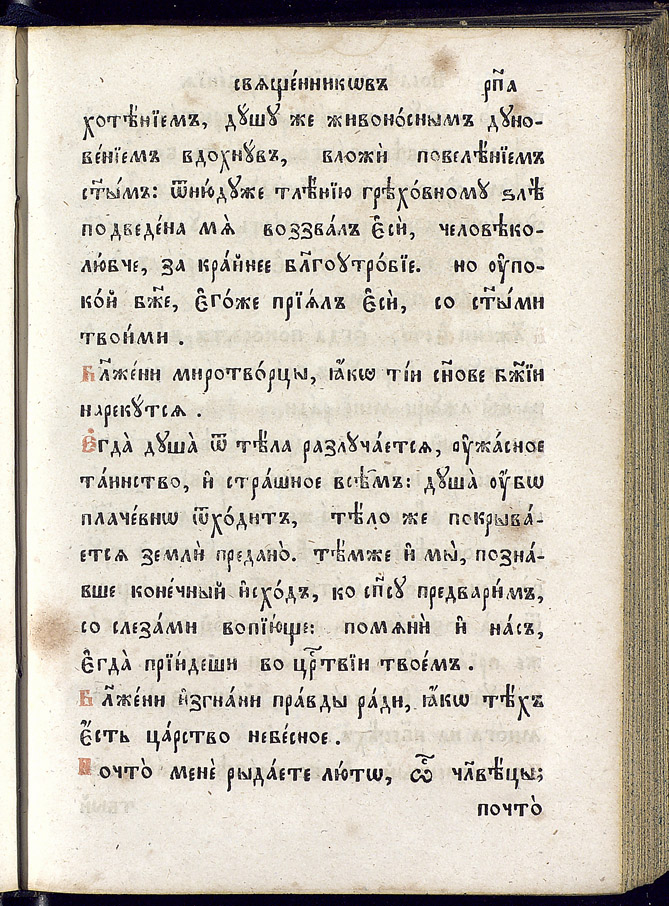 свѧще́нникѡвъ р҃па
хотѣ́нїемъ, дꙋ́шꙋ же живоно́снымъ дꙋно-
ве́нїемъ вдохнꙋ́въ, вложѝ повелѣ́нїемъ
ст҃ы́мъ: ѿню́дꙋже тлѣ́нїю грѣхо́вномꙋ ѕлѣ̀
подведе́на мѧ̀ воззва́лъ є҆сѝ, человѣко-
лю́бче, за кра́йнее бл҃гоꙋтро́бїе. но ᲂу҆по-
ко́й бж҃е, є҆го́же прїѧ́лъ є҆сѝ, со ст҃ы́ми
твои́ми .
Бл҃же́ни миротво́рцы, ꙗ҆́кѡ ті́и сн҃ове бж҃їи
нареку́тсѧ .
Є҆гда̀ дꙋша̀ ѿ тѣ́ла разлꙋча́етсѧ, ᲂу҆жа́сное
та́инство, и҆ стра́шное всѣ̑мъ: дꙋша̀ ᲂу҆́бѡ
плаче́внѡ ѿхо́дитъ, тѣ́ло же покрыва́-
етсѧ землѝ предано̀. тѣ́мже и҆ мы̀, позна́-
вше коне́чный и҆схо́дъ, ко сп҃сꙋ предвари́мъ,
со слеза́ми вопїю́ще: помѧнѝ и҆ на́съ,
є҆гда̀ прїи́деши во црⷭ҇твїи твое́мъ .
Бл҃же́ни и҆згна́ни пра́вды ра́ди, ꙗ҆́кѡ тѣ́хъ
є҆́сть ца́рство небе́сное .
Почто̀ менѐ рыда́ете лю́тѡ, ѽ чл҃вѣцы;
почто̀